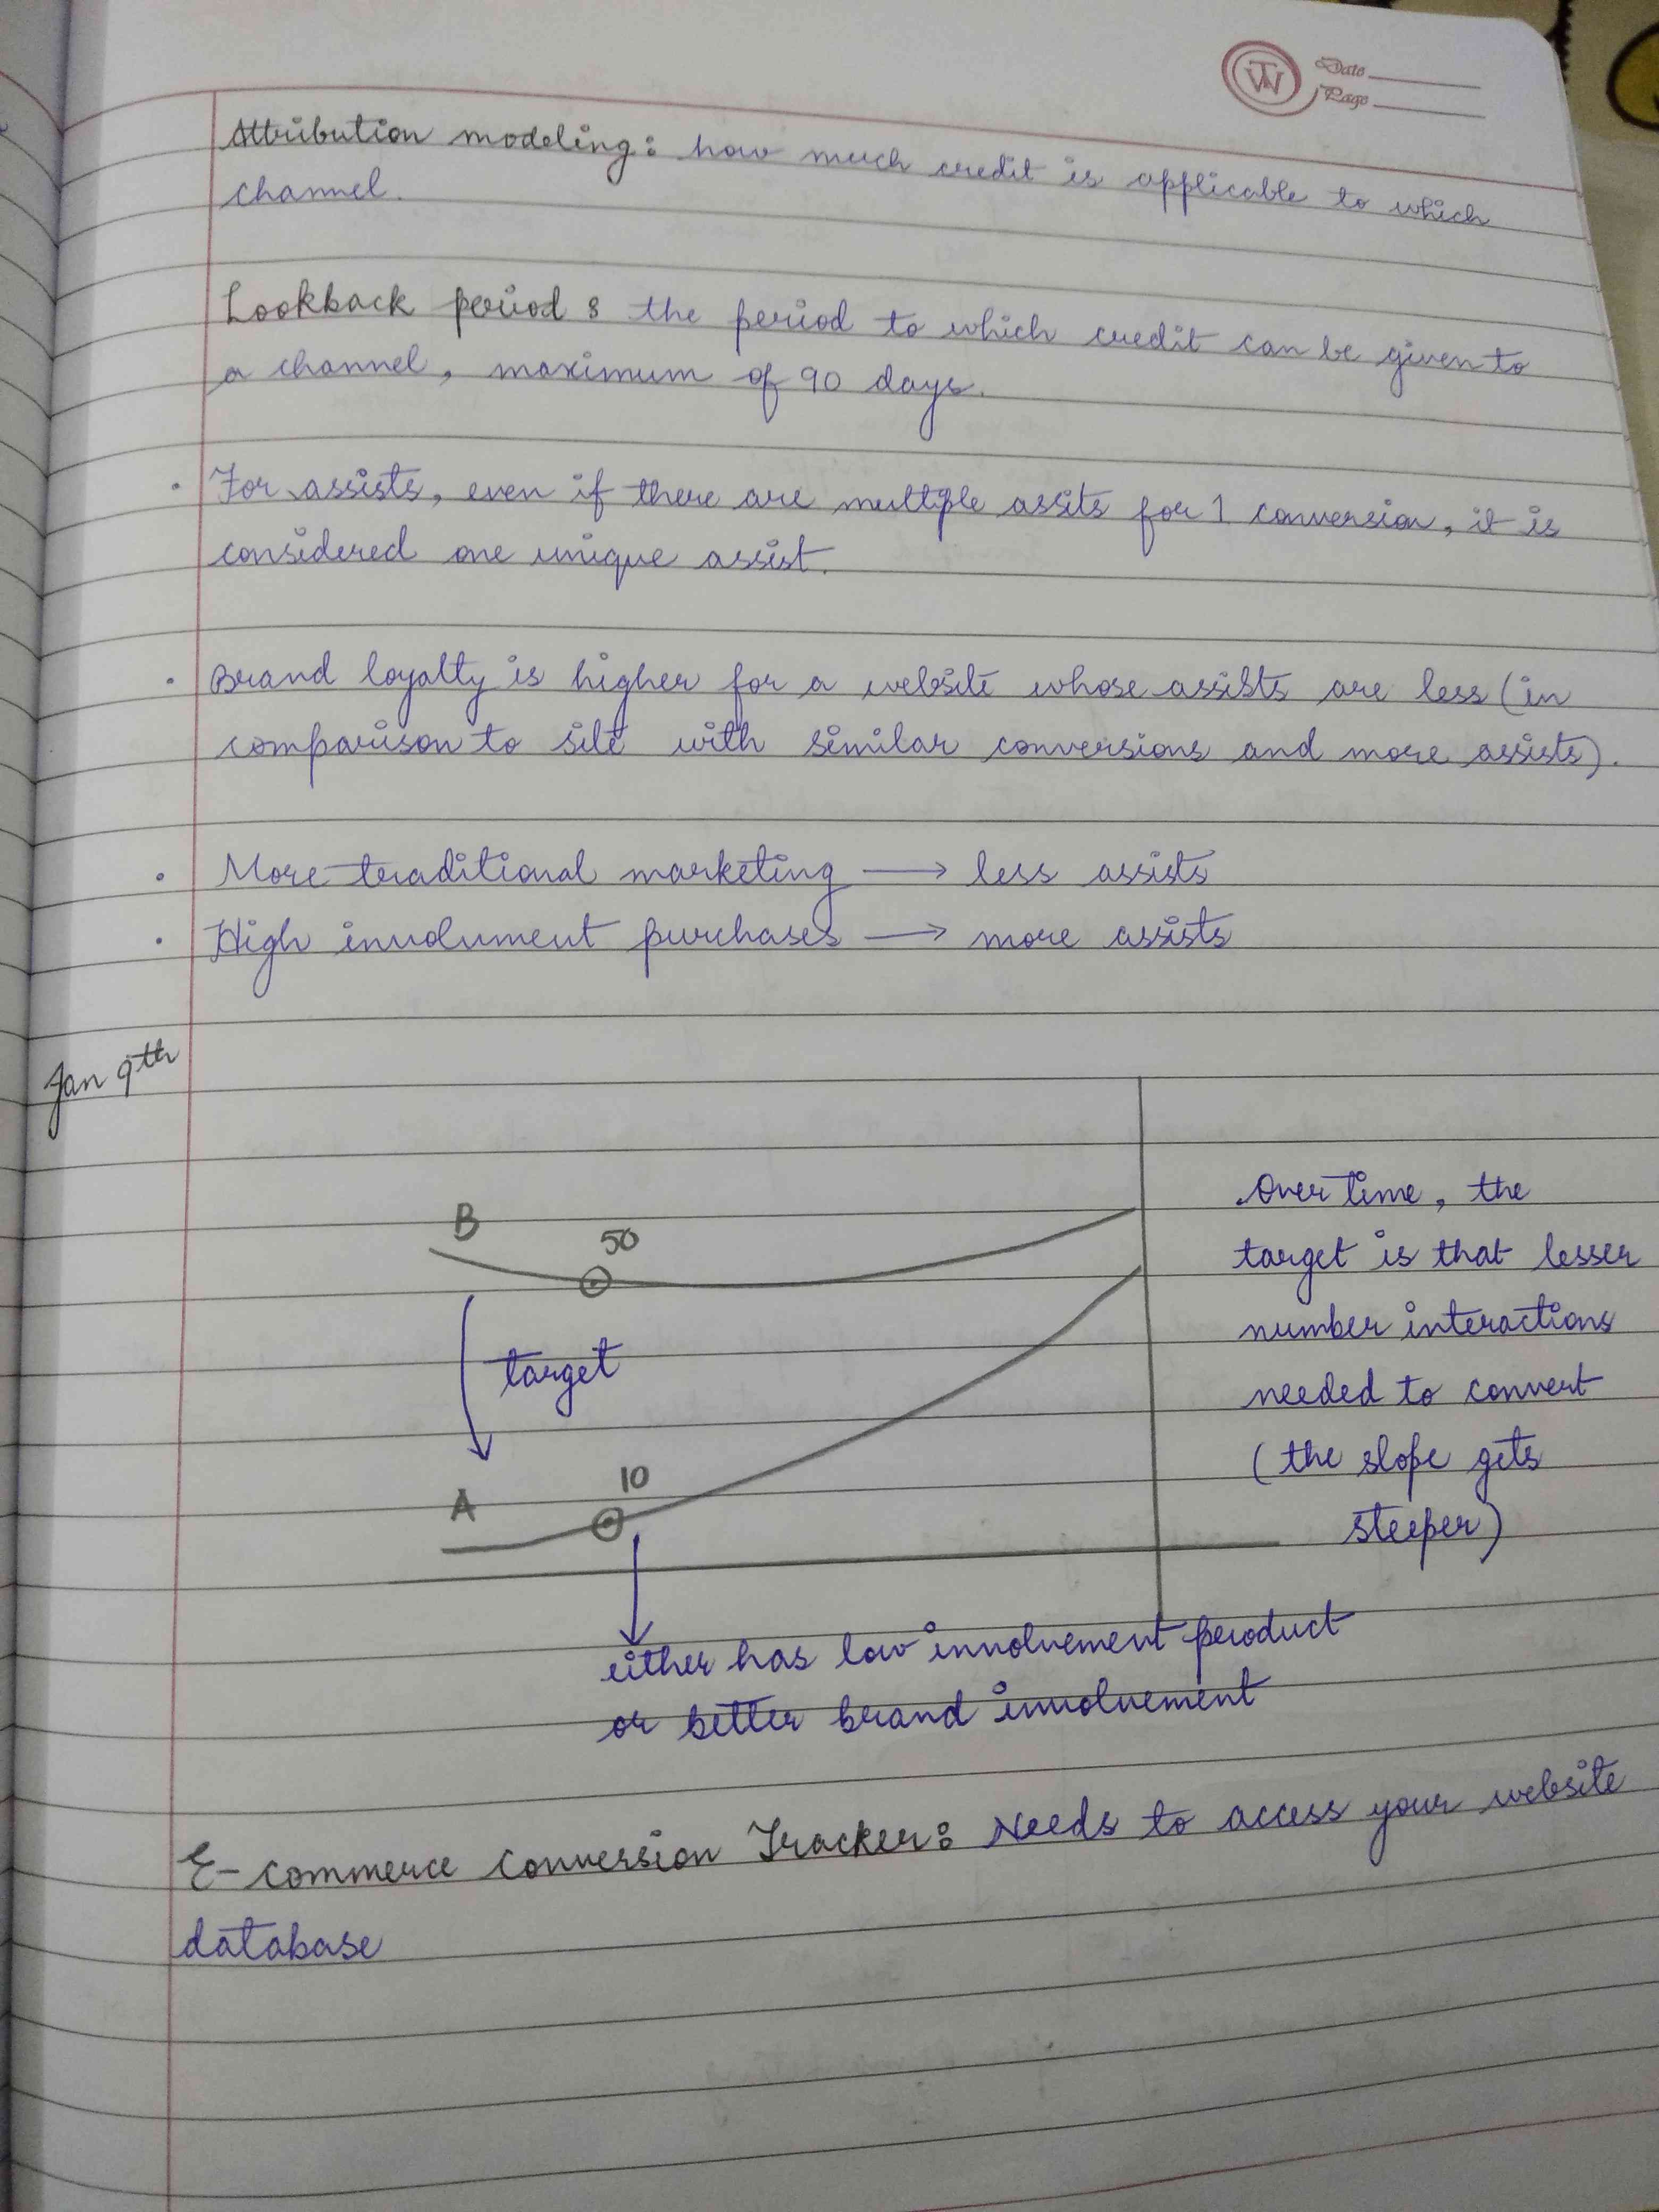 Date
Page
Attribution modeling: how much credit is applicable to which
channel.
Lookback period : the period to which credit can be given to
a channel, maximum of 90 days.
· For assists, even if there are multiple assits for 1 conversion, it is
considered one unique assist.
· Brand loyalty is higher for a website whose assists are less (in
comparison to site with similar conversions and more assists).
· More traditional marketing → less assists
· High involvment purchases → more assists
Jan 9th
B
50
target
A
10
Over time, the
target is that lesser
number interactions
needed to convert
(the slope gets
steeper)
either has low involvement product
or better brand involvement
E-commerce Conversion Tracker: Needs to access your website
database